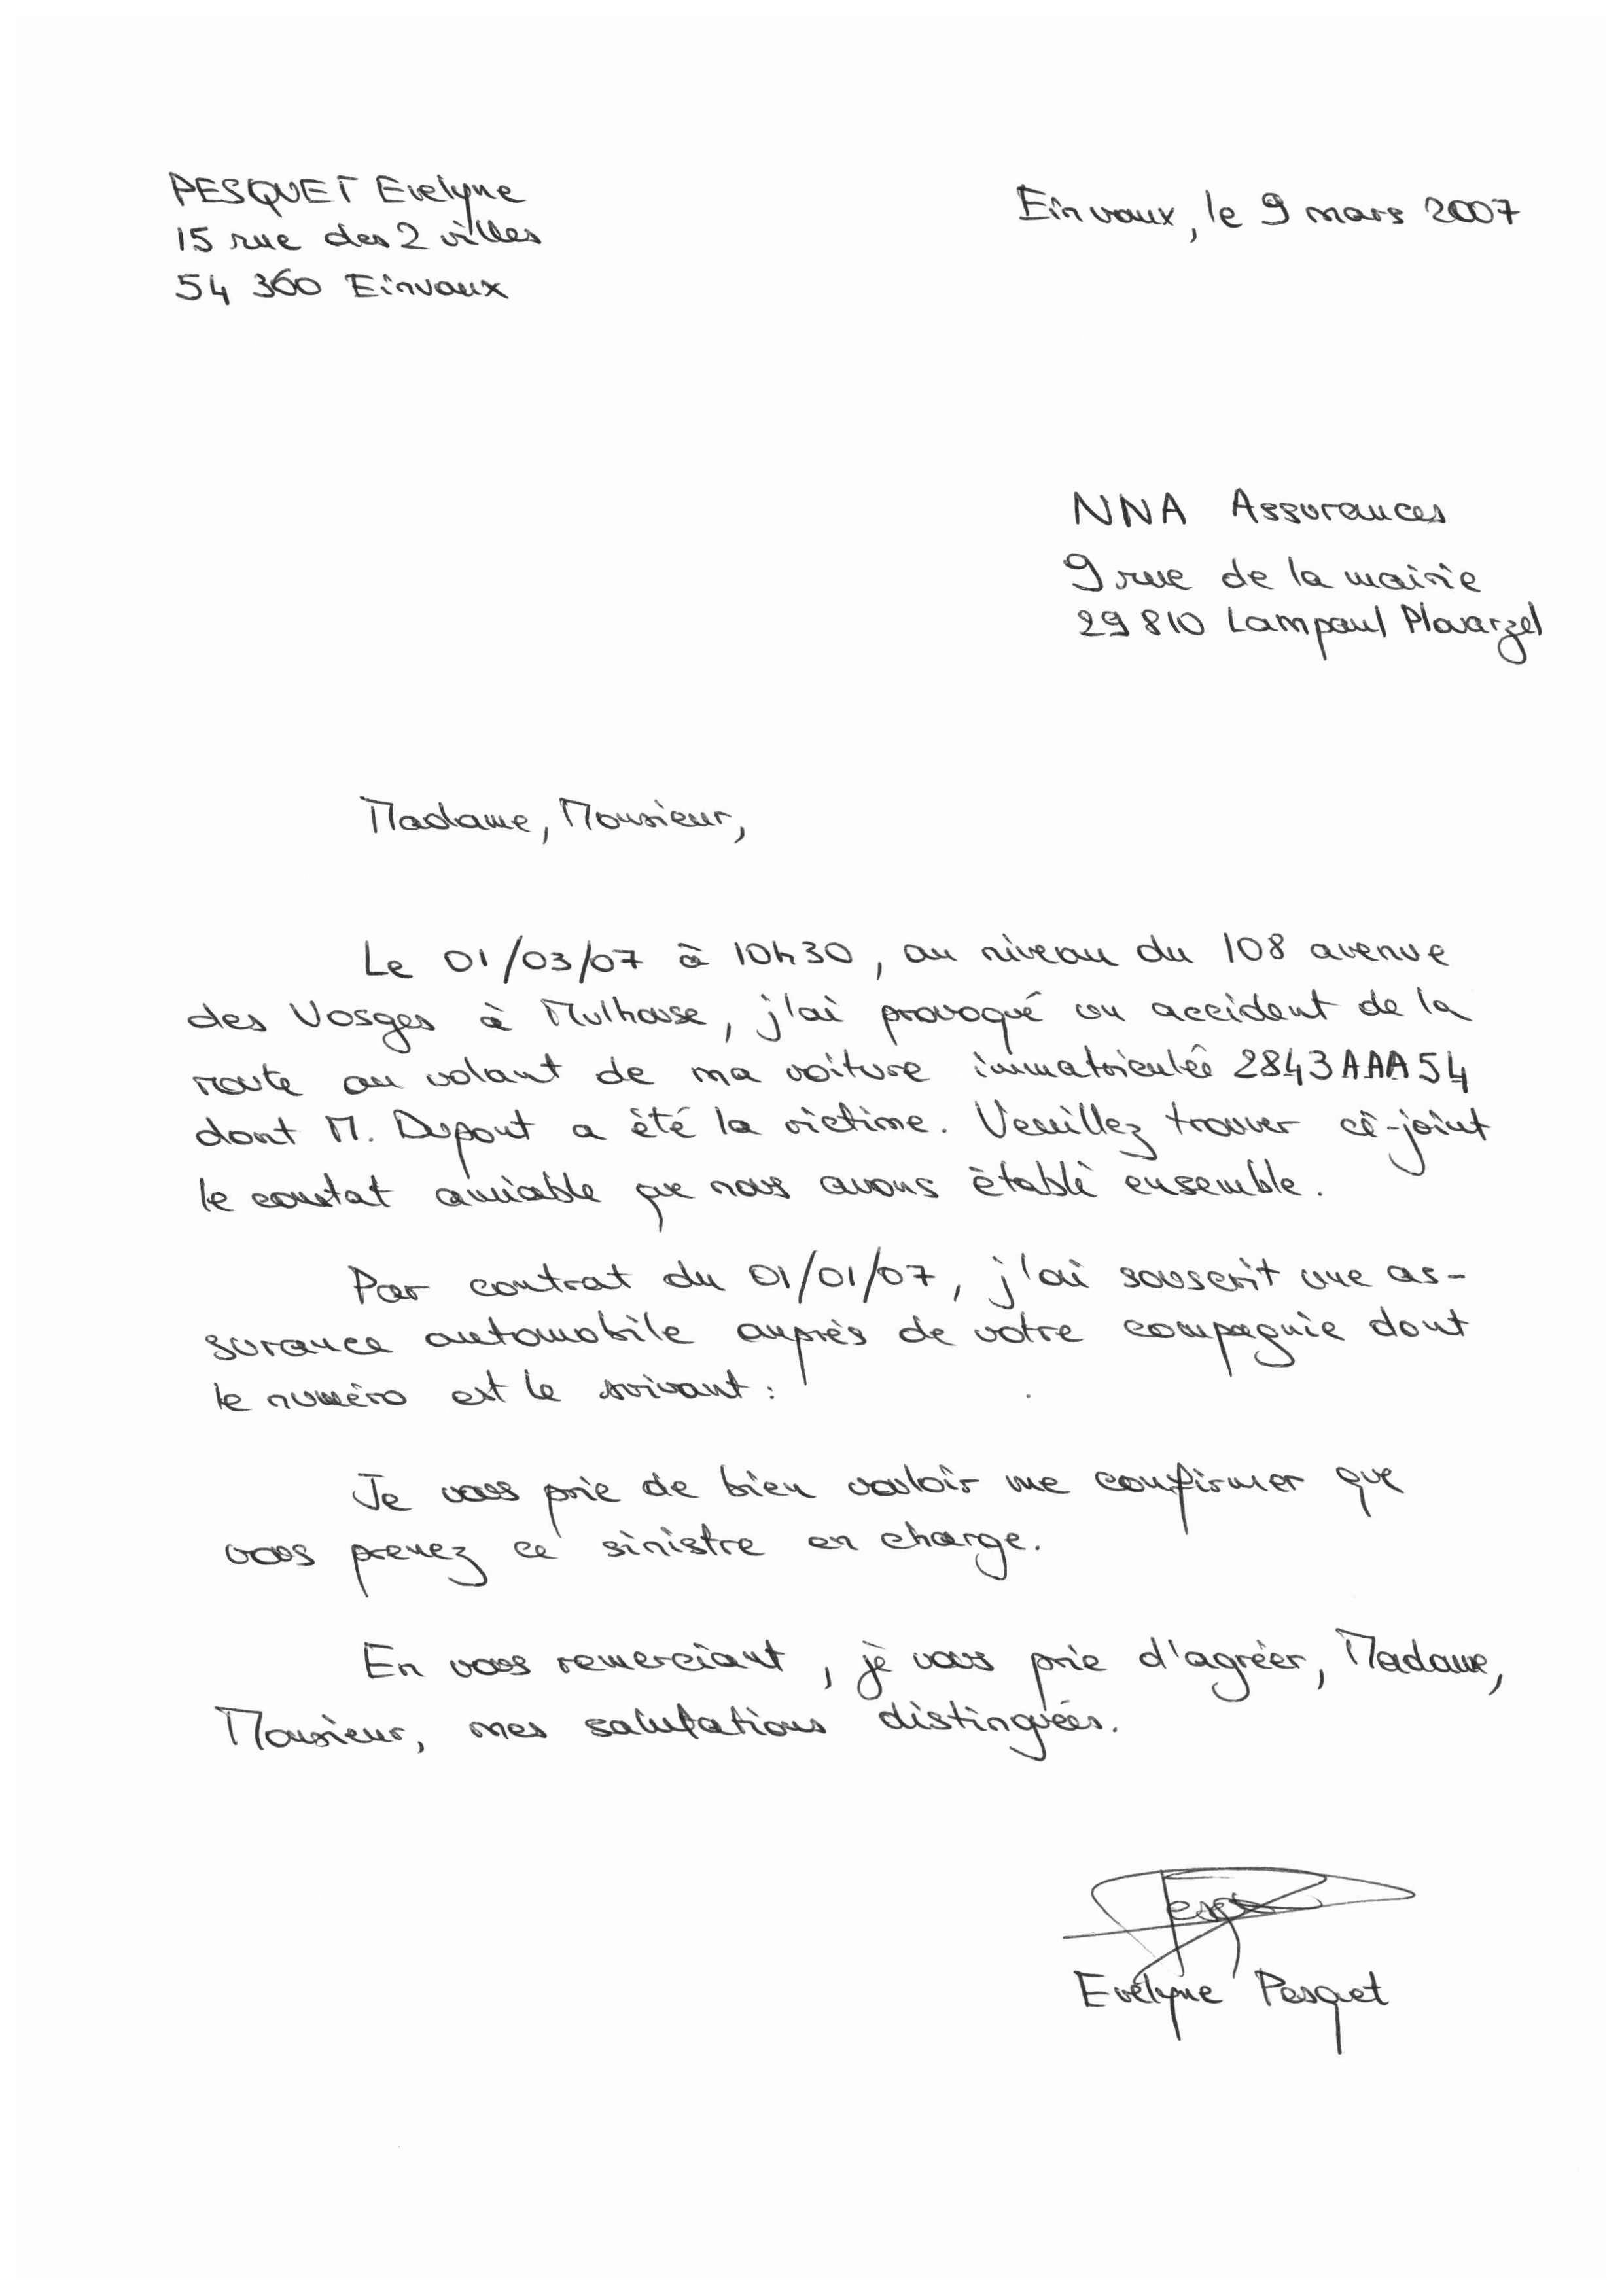 PESQUET Evelyne
15 rue des 2 villes
54 360 Einvaux
Einvaux, le 9 mars 2007
NNA Assurances
9 rue de la mairie
29 810 Lampaul Plouarzel
Madame, Monsieur,
Le 01/03/07 à 10h30, au niveau du 108 avenue
des Vosges à Mulhouse, j'ai provoqué un accident de la
route au volant de ma voiture immatriculée 2843AAA54
dont M. Dupont a été la victime. Veuillez trouver ci-joint
le constat amiable que nous avons établi ensemble.
Par contrat du 01/01/07, j'ai souscrit une as-
surance automobile auprès de votre compagnie dont
le numéro est le suivant :
Je vous prie de bien vouloir me confirmer que
vous prenez ce sinistre en charge.
En vous remerciant, je vous prie d'agréer, Madame,
Monsieur, mes salutations distinguées.
Evelyne Pesquet